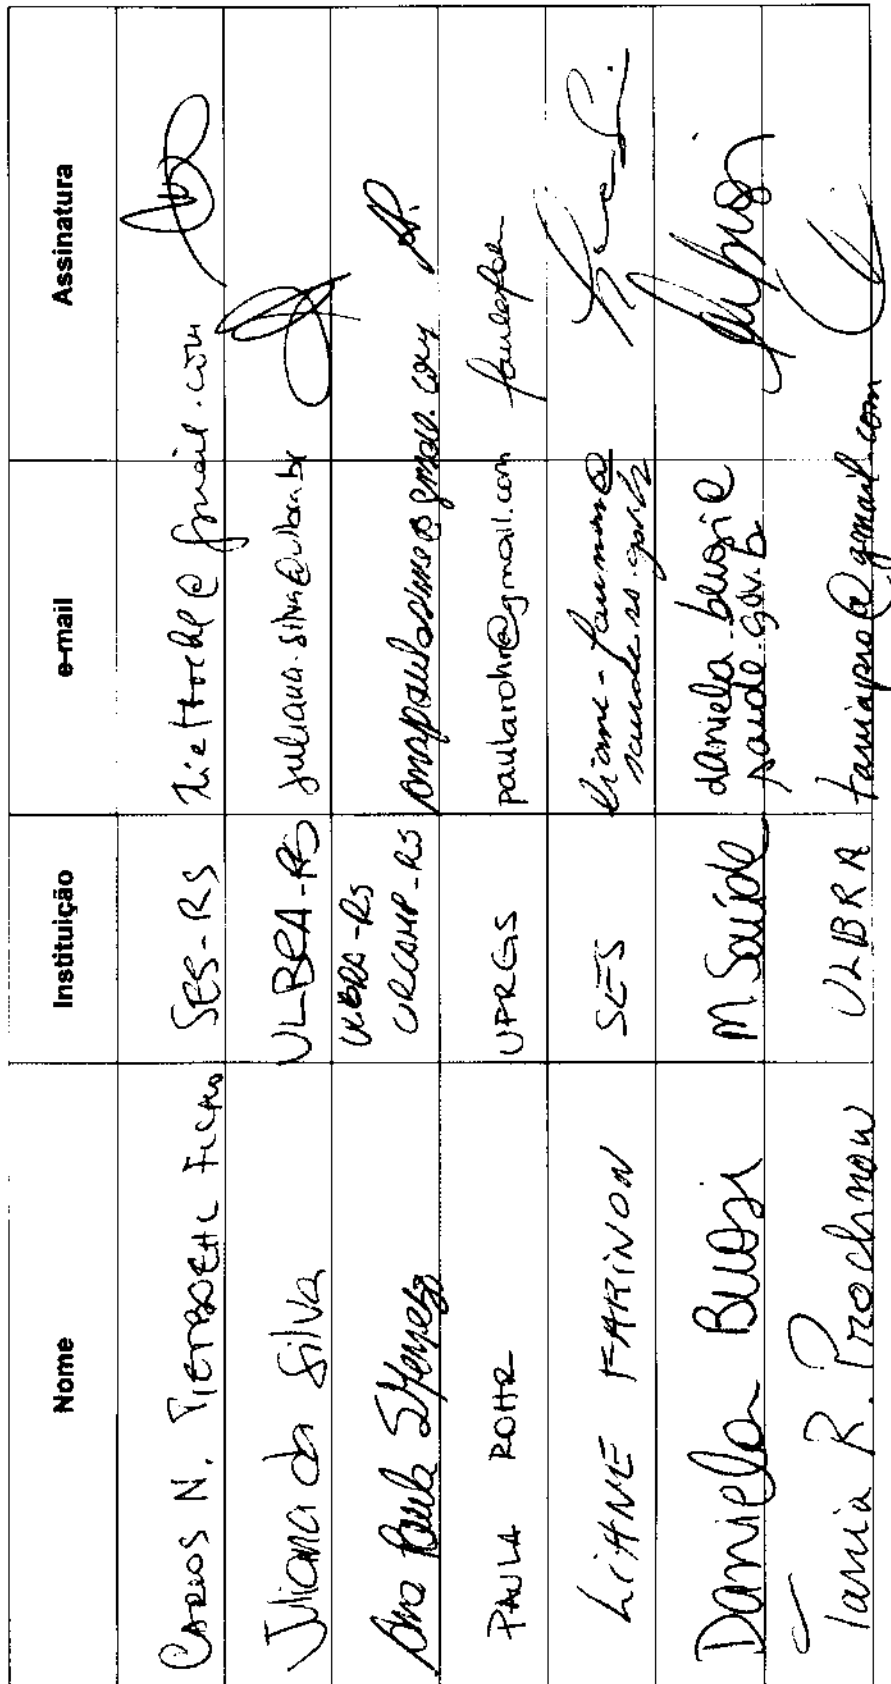 Nome Instituição e-mail Assinatura
CARLOS N. TIETBOEHL FILHO SES-RS
Juliana da Silva ULBRA-RS juliana.silva@ulbra.br
Ana Paula S. ULBRA-RS
URCAMP-RS
PAULA ROHR UFRGS paularohr@gmail.com
LIANE FARINON SES liane-farinon@
saude.rs.gov.br
Daniela Buosi M. Saúde daniela.buosi@
saude.gov.b
Tania R. Prochnow ULBRA taniapro@gmail.com